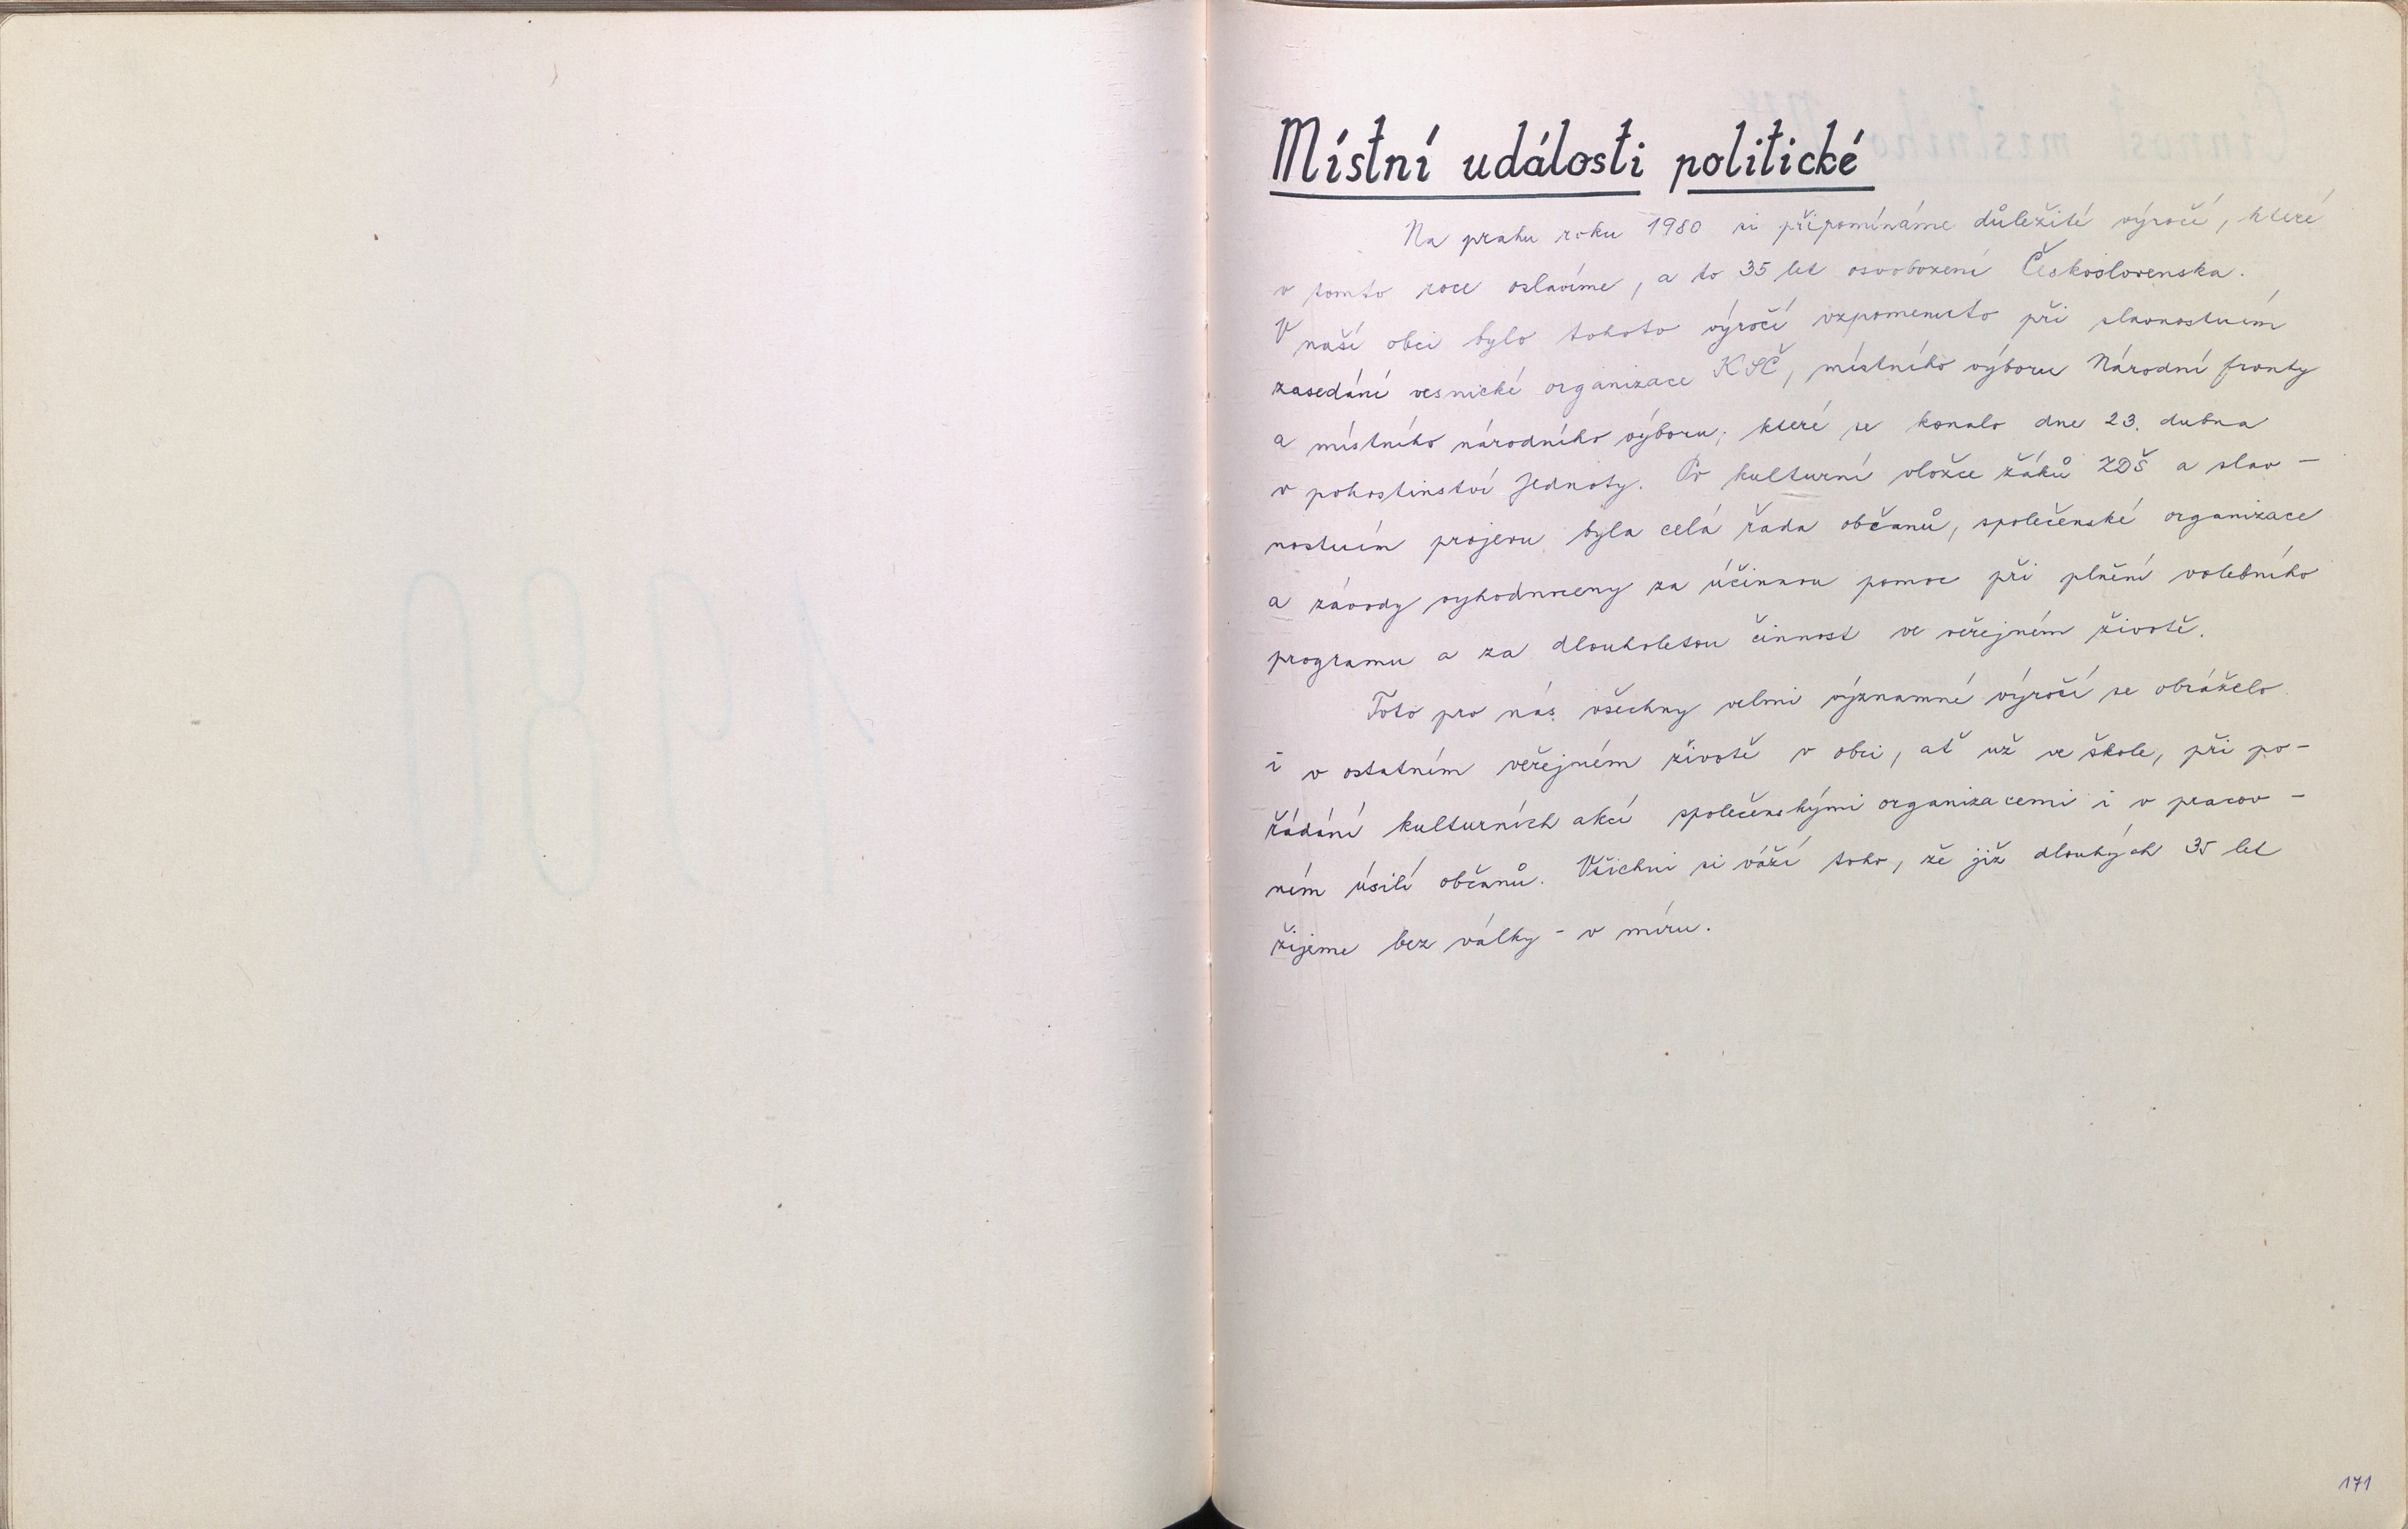 Místní události politické
Na prahu roku 1980 si připomínáme důležité výročí, které
v tomto roce oslavíme, a to 35 let osvobození Československa.
V naší obci bylo tohoto výročí vzpomenuto při slavnostním
zasedání vesnické organizace KSČ, místního výboru Národní fronty
a místního národního výboru, které se konalo dne 23. dubna
v pohostinství Jednoty. Po kulturní vložce žáků ZDŠ a slav-
nostním projevu byla celá řada občanů, společenské organizace
a závody vyhodnoceny za účinnou pomoc při plnění volebního
programu a za dlouholetou činnost ve veřejném životě.
Toto pro nás všechny velmi významné výročí se obráželo
i v ostatním veřejném životě v obci, ať už ve škole, při po-
řádání kulturních akcí společenskými organizacemi i v pracov-
ním úsilí občanů. Všichni si váží toho, že již dlouhých 35 let
žijeme bez války - v míru.
171